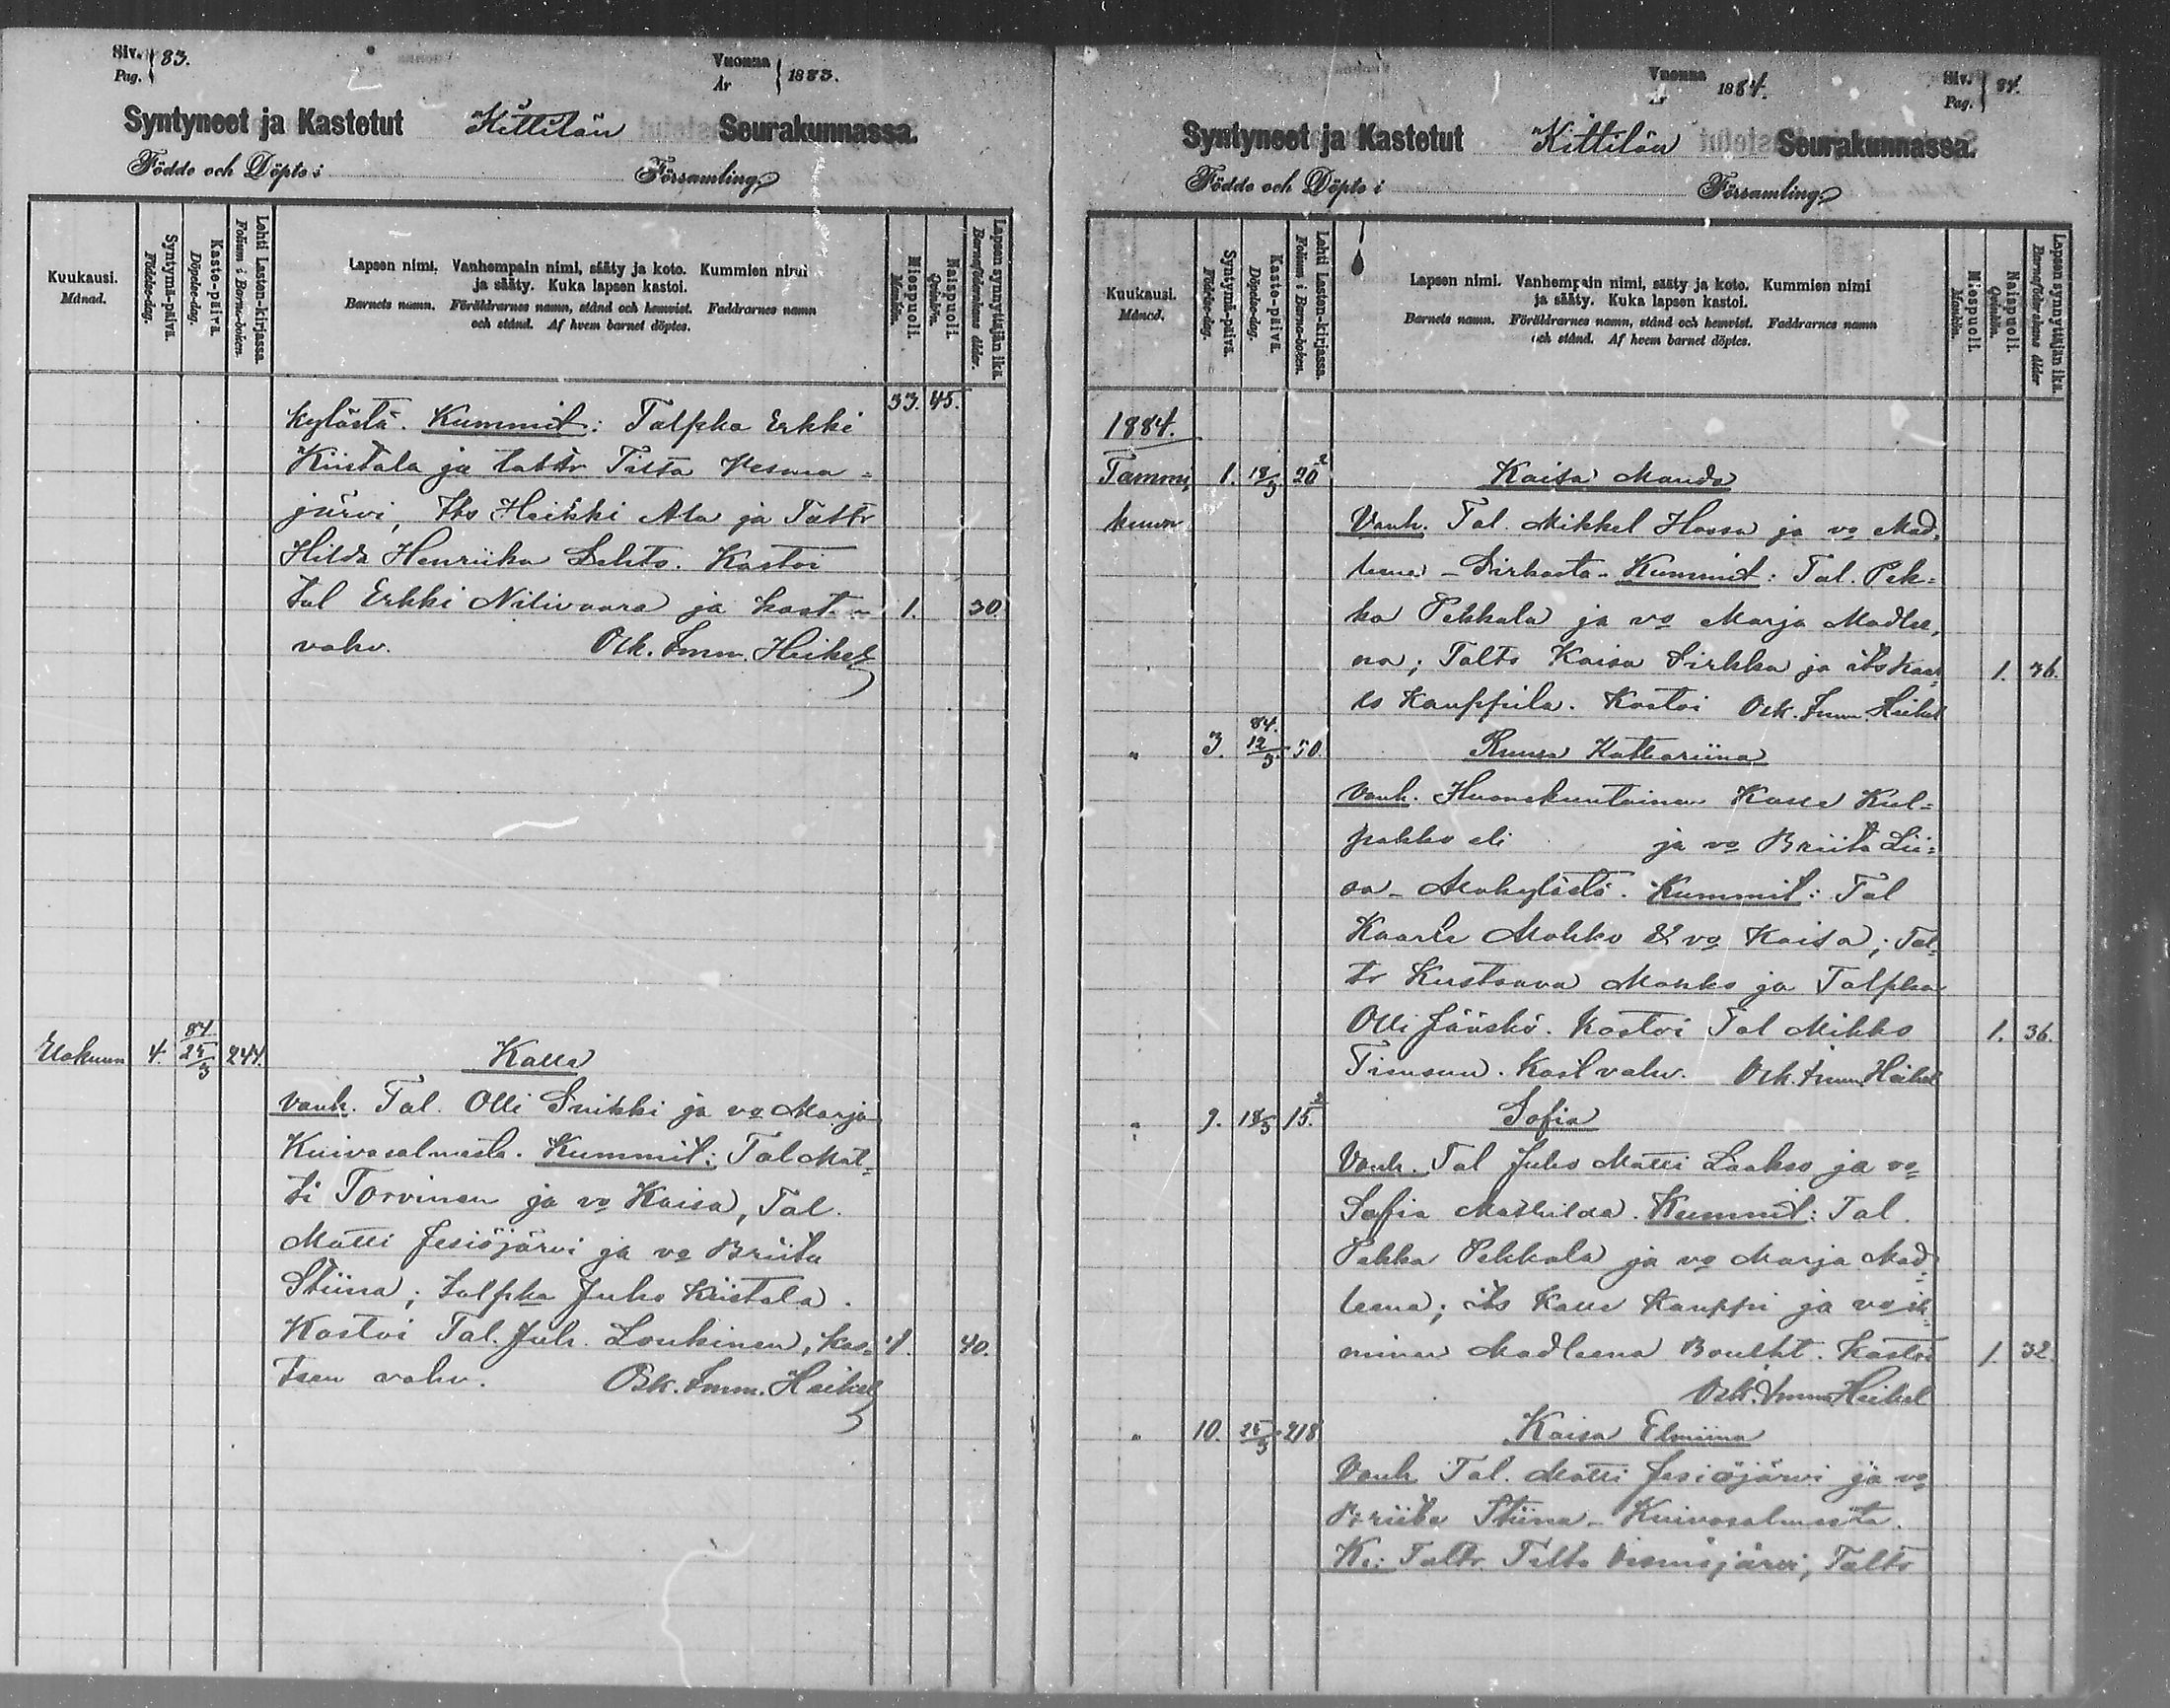 Siv. 83.
Pag.
Vuonna 1883.
År
Syntyneet ja Kastetut Kittilän Seurakunnassa.
Födde och Döpte i Församling.
Kuukausi.
Månad.
Syntymä-päivä.
Födelse-dag.
Kaste-päivä.
Döpelse-dag.
Lehti Lasten-kirjassa.
Folium i Barna-boken.
Lapsen nimi. Vanhempain nimi, sääty ja koto. Kummien nimi
ja sääty. Kuka lapsen kastoi.
Barnets namn. Föräldrarnes namn, stånd och hemvist. Faddrarnes namn
och stånd. Af hvem barnet döptes.
Miespuoli.
Mankön.
Naispuoli.
Qvinkön.
Lapsen synnyttäjän ikä.
Barnaföderskans ålder.
53. 45.
kylästä. Kummit: Talpka Erkki
Kiistala ja taltr Tilta Vesma=
järvi, Its Heikki Ala ja Taltr
Hilda Henriika Lehto. Kastoi
Tal Erkki Nilivaara ja kast 1. 30.
vahv. Osk. Imm. Heikel
Elokuun 4. 84 25/3 244. Kalle
Vanh. Tal. Olli Snikki ja vo Marja
Kuivasalmesta. Kummit: Tal Mat=
ti Torvinen ja vo Kaisa, Tal.
Matti Jesiöjärvi ja vo Briita
Stiina; Talpka Juho Kiistala.
Kastoi Tal. Juh. Loukinen, kas= 1. 40.
teen vahv. Osk. Imm. Heikel
Vuonna 1884.
År
Siv. 84.
Pag.
Syntyneet ja Kastetut Kittilän Seurakunnassa.
Födde och Döpte i Församling.
Kuukausi.
Månad.
Syntymä-päivä.
Födelse-dag.
Kaste-päivä.
Döpelse-dag.
Lehti Lasten-kirjassa.
Folium i Barna-boken.
Lapsen nimi. Vanhempain nimi, sääty ja koto. Kummien nimi
ja sääty. Kuka lapsen kastoi.
Barnets namn. Föräldrarnes namn, stånd och hemvist. Faddrarnes namn
och stånd. Af hvem barnet döptes.
Miespuoli.
Mankön.
Naispuoli.
Qvinkön.
Lapsen synnyttäjän ikä.
Barnaföderskans ålder
1884.
Tammi, 1. 18/3 20 2 Kaisa Manda
kuun Vanh. Tal. Mikkel Hossa ja vo Mad,
leena - Sirkasta - Kummit: Tal. Pek=
ka Pekkala ja vo Marja Madlee,
na; Talts Kaisa Sirkka ja its Kaar= 1. 36.
lo Kauppila. Kastoi Osk. Imm. Heikel
" 3. 84. 12/3 50. Ruusa Kathariina
Vanh. Huonekuntainen Kalle Kul=
pakko eli ja vo Briita Lii=
sa - Alakylästä. Kummit: Tal
Kaarle Molkko & vo Kaisa; Tal=
tr Kustaava Molkko ja Talpka
Olli Jääskö. Kastoi Tal Mikko 1. 36.
Timonen. Kast vahv. Osk. Imm. Heikel
" 9. 18/3 15. 2 Sofia
Vanh. Tal Juho Matti Laakso ja vo
Sofia Mathilda. Kummit: Tal.
Pekka Pekkala ja vo Marja Mad=
leena; its Kalle Kauppi ja vo
Madleena Boucht. Kastoi 1. 32.
Osk. Imm. Heikel
" 10. 25/3 218 Kaisa Elmiina
Vanh Tal. Matti Jesiöjärvi ja vo
Briita Stiina - Kuivasalmesta.
Ku: Taltr. Tilta järvi, Talts